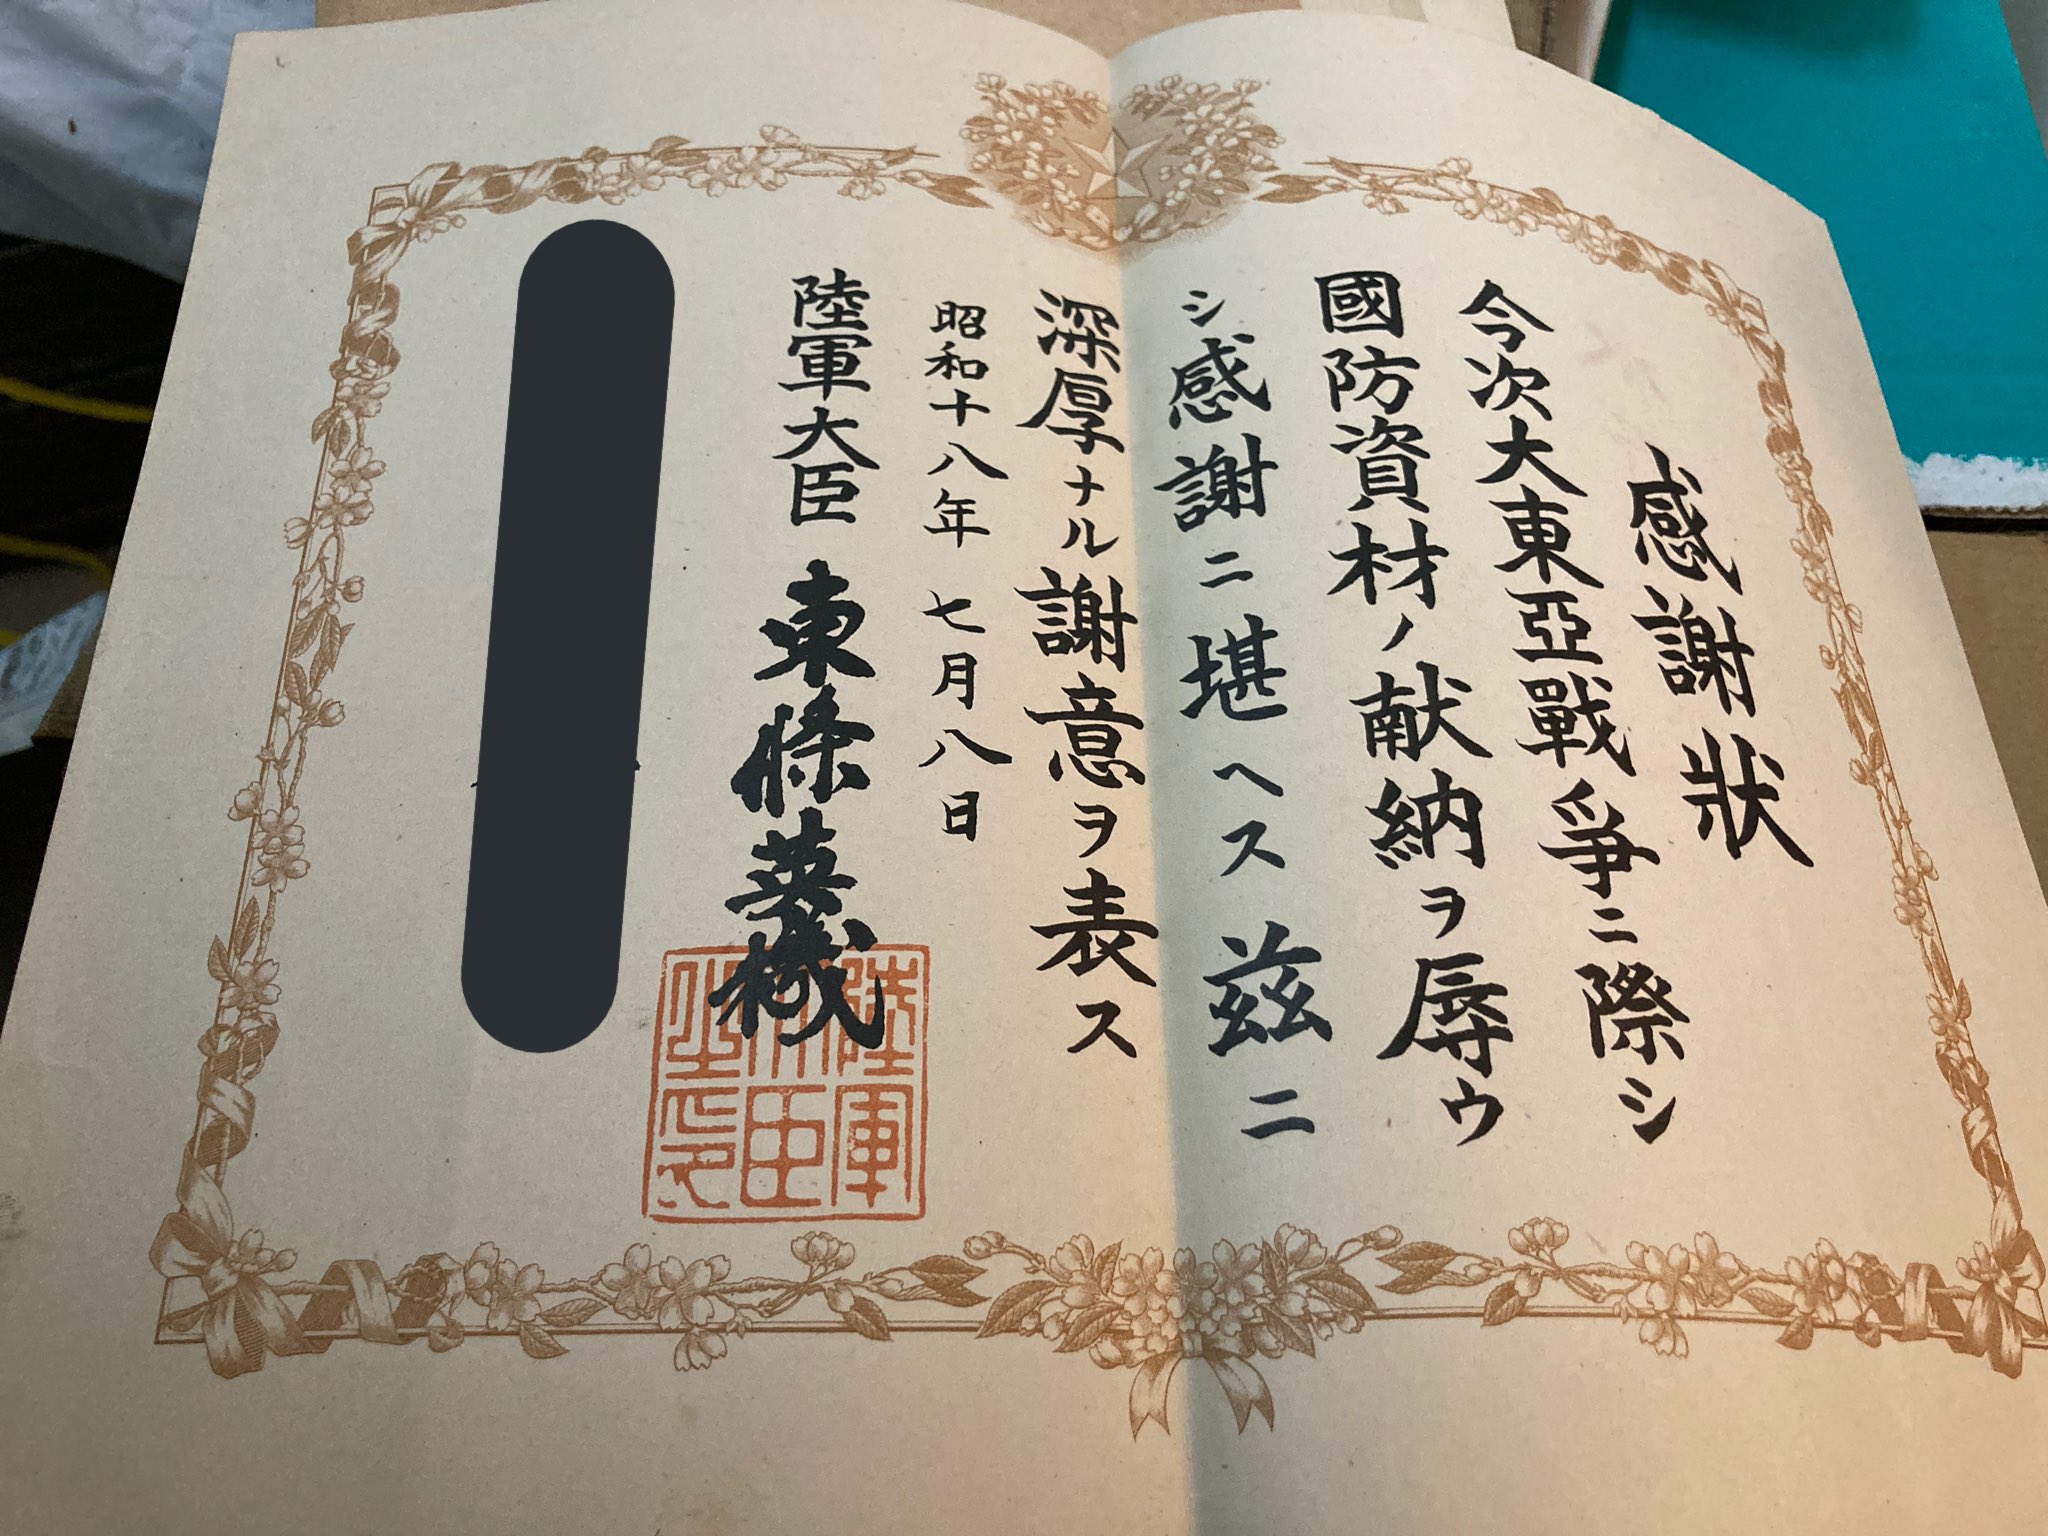 感謝狀
今次大東亞戰爭ニ際シ
國防資材ノ献納ヲ辱ウ
シ感謝ニ堪ヘス茲ニ
深厚ナル謝意ヲ表ス
昭和十八年七月八日
陸軍大臣 東條英機
陸軍
大臣
之印